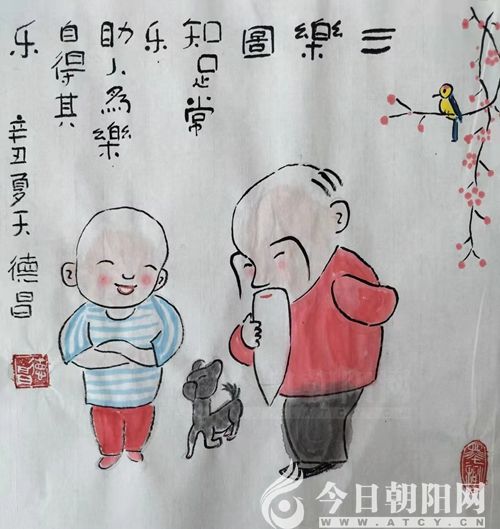 三樂圖
知足常
乐
助人為樂
自得其
乐
辛丑夏天 德昌
德昌
今日朝阳网
WWW.ATCY.CN